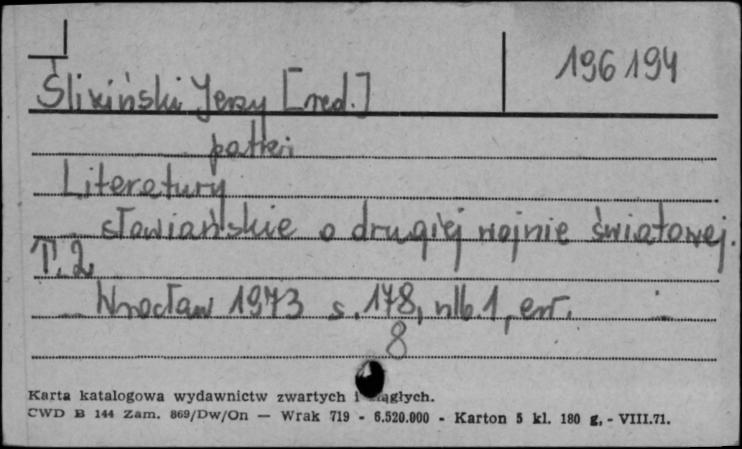 196194
Śliziński Jerzy [red.]
patrz:
Literatury
słowiańskie o drugiej wojnie światowej.
T. 2
Wrocław 1973 s. 178, nlb. 1, err.
8
Karta katalogowa wydawnictw zwartych i ciągłych.
CWD B 144 Zam. 869/Dw/On — Wrak 719 - 6.520.000 - Karton 5 kl. 180 g. - VIII.71.